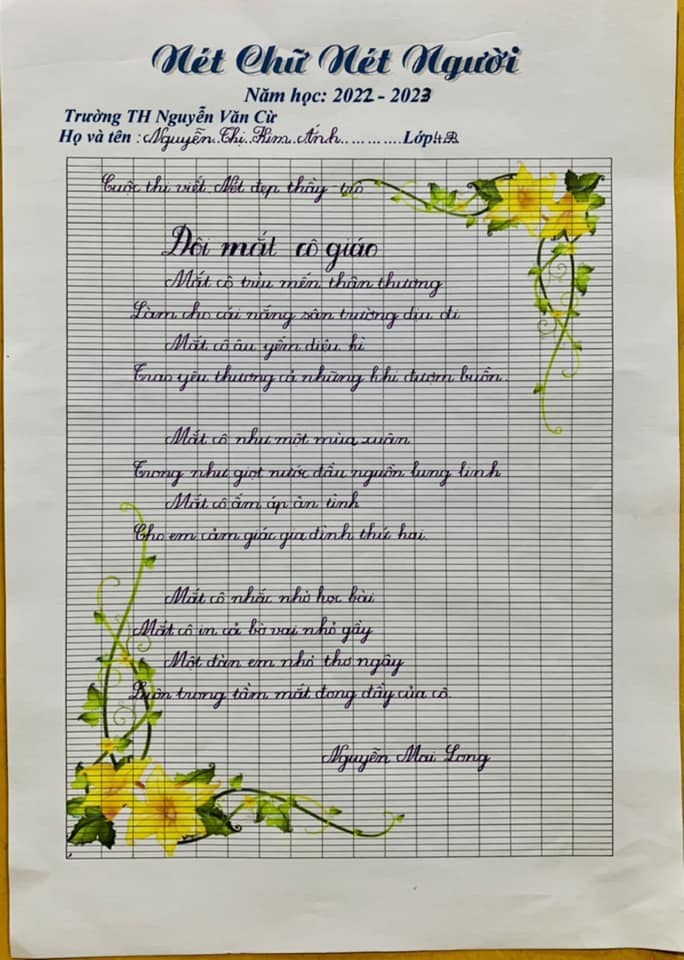 Nét Chữ Nét Người
Năm học: 2022 - 2023
Trường TH Nguyễn Văn Cừ
Họ và tên : Nguyễn Thị Kim Ánh............Lớp 4B
Cuộc thi viết Nét đẹp thầy - trò
Đôi mắt cô giáo
Mắt cô trìu mến thân thương
Làm cho cái nắng sân trường dịu đi
Mắt cô âu yếm diệu kì
Trao yêu thương cả những khi đượm buồn.
Mắt cô như một mùa xuân
Trong như giọt nước đầu nguồn lung linh
Mắt cô ấm áp ân tình
Cho em cảm giác gia đình thứ hai.
Mắt cô nhắc nhở học bài
Mắt cô in cả bờ vai nhỏ gầy
Một đàn em nhỏ thơ ngây
Luôn trong tầm mắt đong đầy của cô.
Nguyễn Mai Long